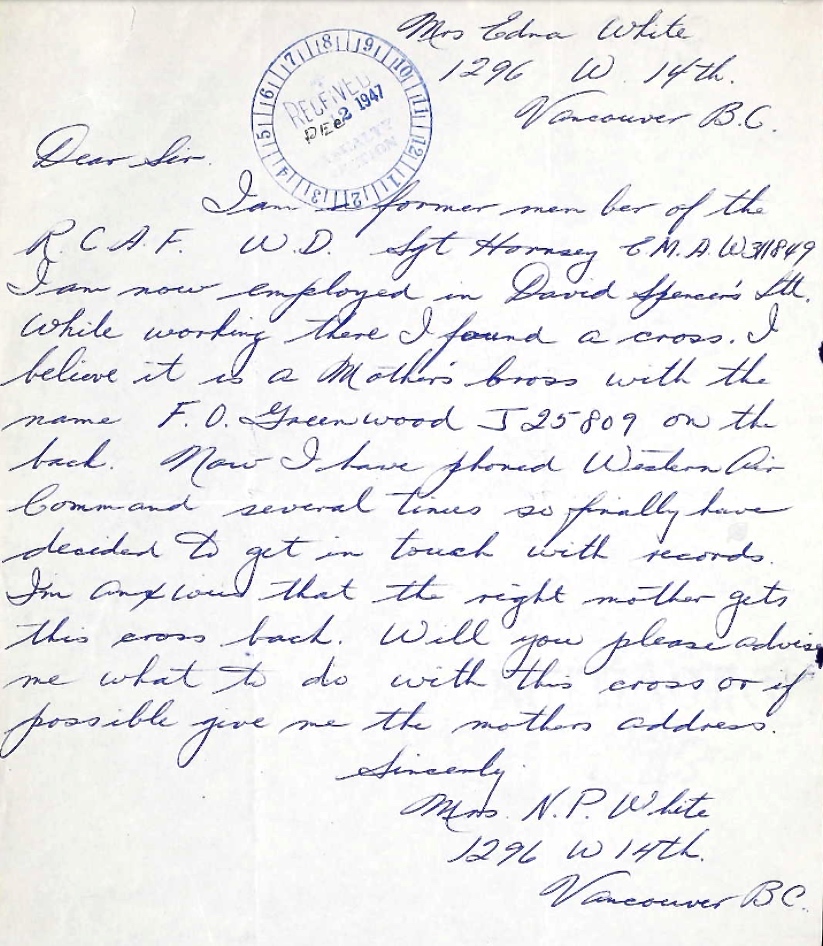 Mrs Edna White
1296 W. 14th.
Vancouver B.C.
7 8 9 10 11 12 1 2 3 4 5 6
RECEIVED
DEC 2 1947
CASUALTY
SECTION
Dear Sir.
I am a former member of the
R.C.A.F. W.D. Sgt Hornsey E.M.A. W311849
I am now employed in David Spencer's Ltd.
While working there I found a cross. I
believe it is a Mother's Cross with the
name F.O. Greenwood J25809 on the
back. Now I have phoned Western Air
Command several times so finally have
decided to get in touch with records.
I'm anxious that the right mother gets
this cross back. Will you please advise
me what to do with this cross or if
possible give me the mothers address.
Sincerly
Mrs. N.P. White
1296 W 14th.
Vancouver BC.